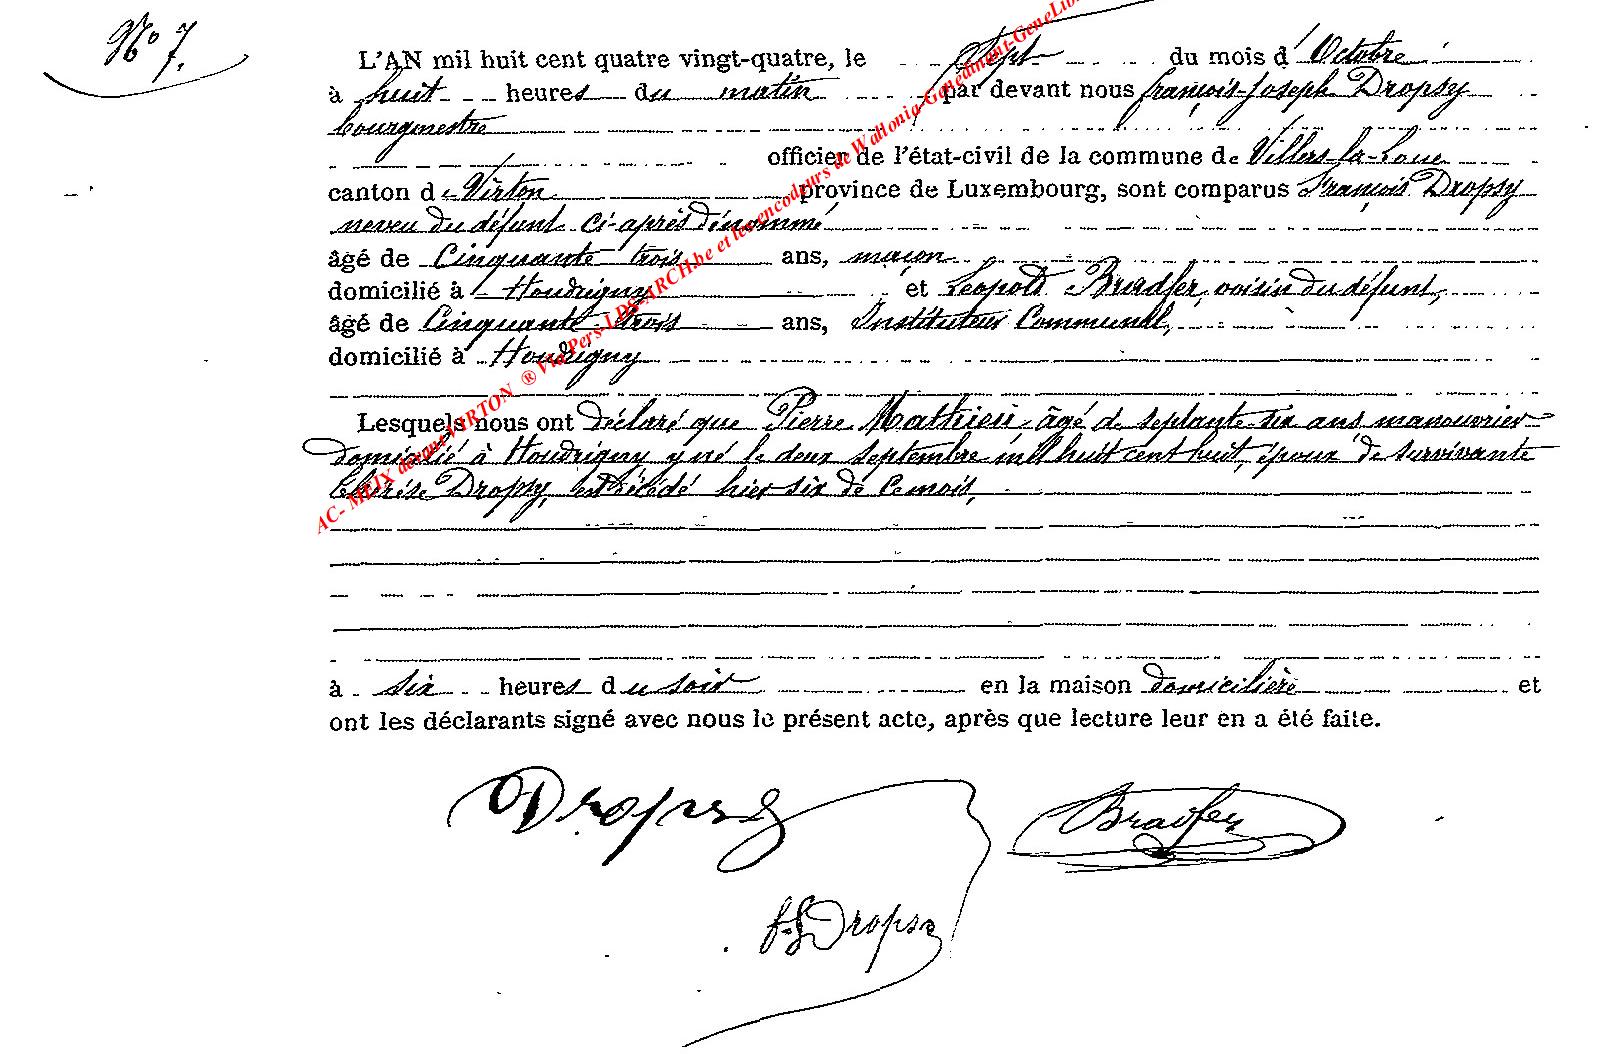 N° 7.
L'AN mil huit cent quatre vingt-quatre, le sept du mois d'Octobre
à huit heures du matin par devant nous françois-Joseph Dropsy
bourgmestre
officier de l'état-civil de la commune de Villers-la-Loue
canton de Virton province de Luxembourg, sont comparus François Dropsy
neveu du défunt ci-après dénommé
âgé de Cinquante trois ans, maçon
domicilié à Houdrigny et Léopold Bradfer, voisin du défunt,
âgé de Cinquante trois ans, Instituteur Communal,
domicilié à Houdrigny
Lesquels nous ont déclaré que Pierre Mathieu, âgé de septante six ans manouvrier
domicilié à Houdrigny y né le deux septembre mil huit cent huit, époux de survivante
Thérèse Dropsy, est décédé hier six de ce mois,
à six heures du soir en la maison domicilière et
ont les déclarants signé avec nous le présent acte, après que lecture leur en a été faite.
Dropsy Bradfer
f-J Dropsy
AC- MEIX devant VIRTON ® Via Pers-LDS-ARCH.be et les encodeurs de Wallonia-Genedinant-GeneLib